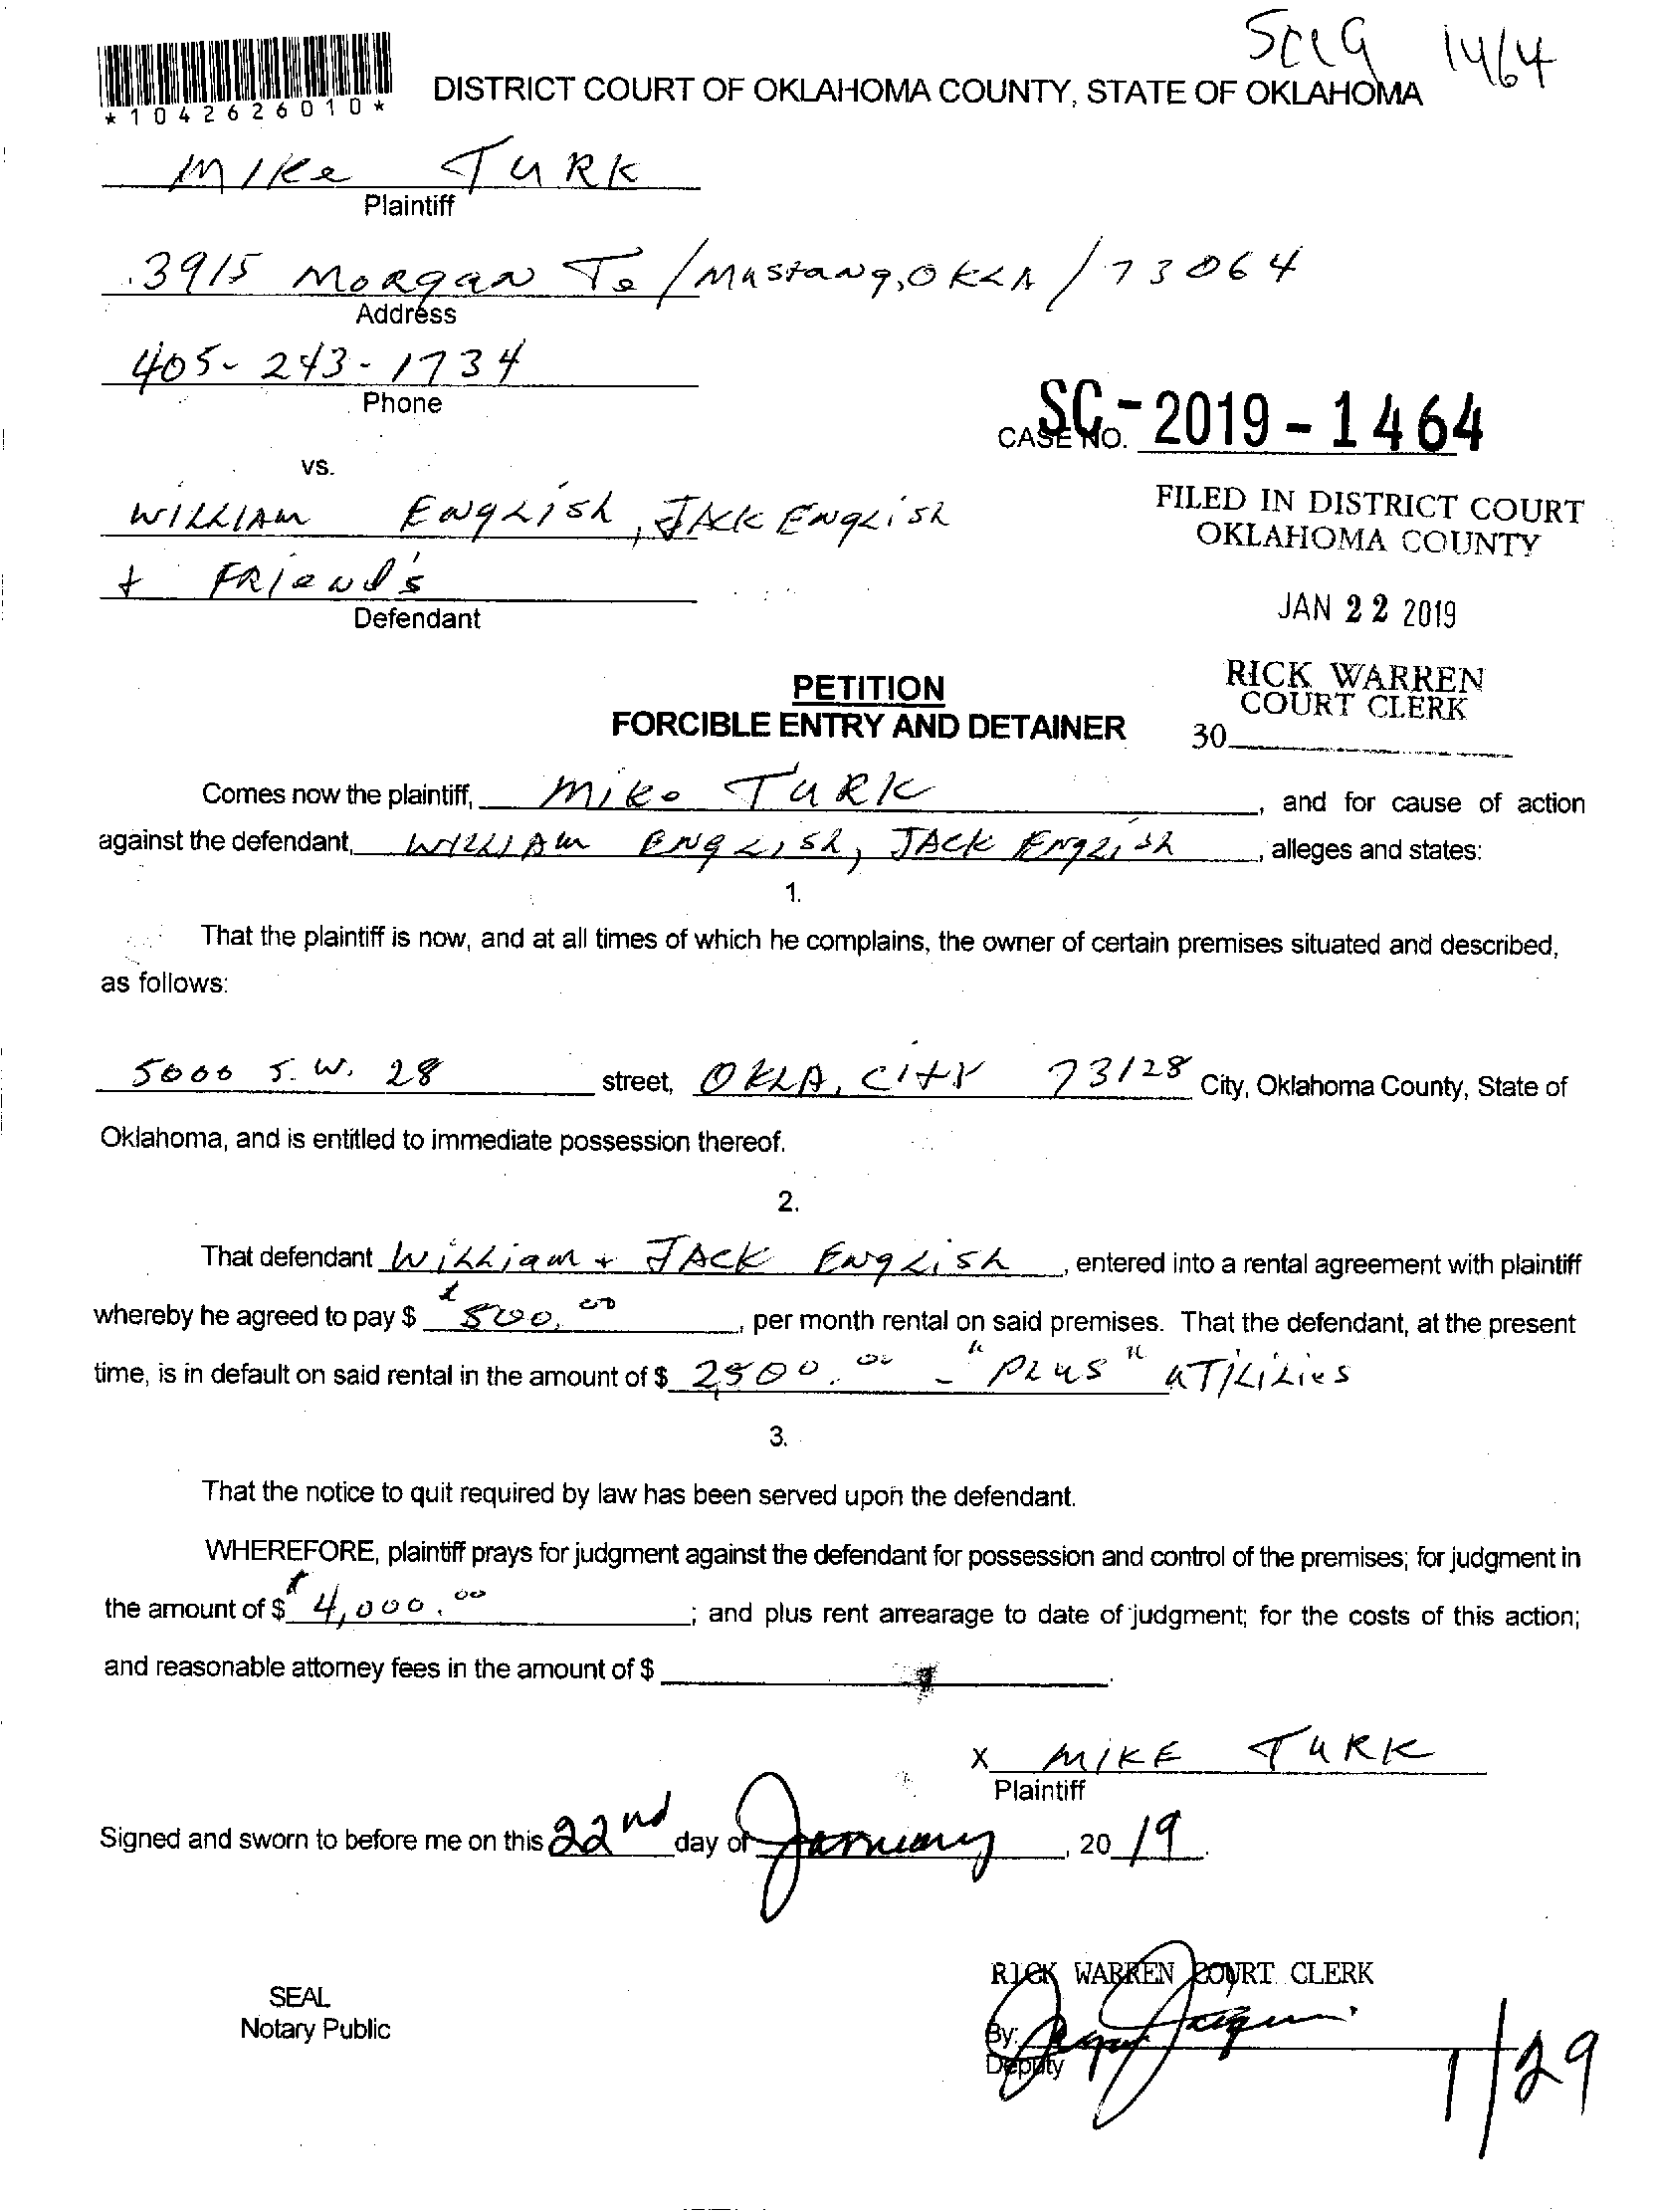 SC19 1464
*1042626010*
DISTRICT COURT OF OKLAHOMA COUNTY, STATE OF OKLAHOMA
Mike Turk
Plaintiff
3915 Morgan Te / Mustang, OKLA / 73064
Address
405-243-1734
Phone
CASE NO. SC-2019-1464
vs.
William English, Jack English
+ Friend's
Defendant
FILED IN DISTRICT COURT
OKLAHOMA COUNTY
JAN 22 2019
RICK WARREN
COURT CLERK
30
PETITION
FORCIBLE ENTRY AND DETAINER
Comes now the plaintiff, Mike Turk, and for cause of action
against the defendant, William English, Jack English, alleges and states:
1.
That the plaintiff is now, and at all times of which he complains, the owner of certain premises situated and described,
as follows:
5000 S.W. 28 street, OKLA, City 73128 City, Oklahoma County, State of
Oklahoma, and is entitled to immediate possession thereof.
2.
That defendant William + Jack English, entered into a rental agreement with plaintiff
whereby he agreed to pay $ $500.00, per month rental on said premises. That the defendant, at the present
time, is in default on said rental in the amount of $ 2,500.00 - "Plus" utilities
3.
That the notice to quit required by law has been served upon the defendant.
WHEREFORE, plaintiff prays for judgment against the defendant for possession and control of the premises; for judgment in
the amount of $ $4,000.00; and plus rent arrearage to date of judgment; for the costs of this action;
and reasonable attorney fees in the amount of $ .
X MIKE TURK
Plaintiff
Signed and sworn to before me on this 22nd day of January, 2019.
RICK WARREN COURT CLERK
SEAL
Notary Public
By:
Deputy
1/29